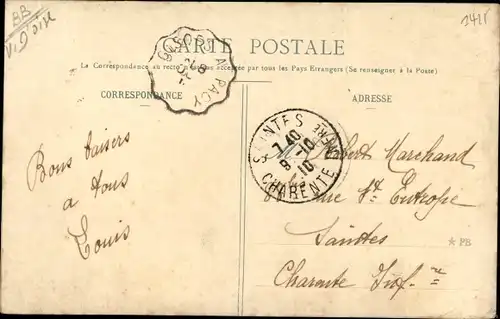 BB
V. Oise
1421
CARTE POSTALE
La Correspondance au recto n'est pas acceptée par tous les Pays Etrangers (Se renseigner à la Poste)
CORRESPONDANCE
ADRESSE
GISORS A PACY
SAINTES
7 40
8 -10
10
CHARENTE INFRE
Bons baisers
à tous
Louis
Robert Marchand
rue St Eutrope
Saintes
Charente Infre
* PB